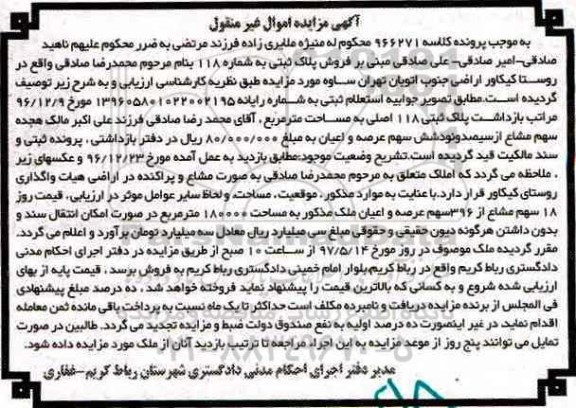 آگهی مزایده اموال غیر منقول
به موجب پرونده کلاسه ۹۶۶۲۷۱ محکوم له منیژه ملایری زاده فرزند مرتضی به ضرر محکوم علیهم ناهید
صادقی-امیر صادقی- علی صادقی مبنی بر فروش پلاک ثبتی به شماره ۱۱۸ بنام مرحوم محمدرضا صادقی واقع در
روستا کیکاور اراضی جنوب اتوبان تهران ساوه مورد مزایده طبق نظریه کارشناسی ارزیابی و به شرح زیر توصیف
گردیده است.مطابق تصویر جوابیه استعلام ثبتی به شماره رایانه ۱۳۹۶۰۵۸۰۱۰۲۲۰۰۲۱۹۵ مورخ ۹۶/۱۲/۹
مراتب بازداشت پلاک ثبتی ۱۱۸ اصلی به مساحت مترمربع ، آقای محمد رضا صادقی فرزند علی اکبر مالک هجده
سهم مشاع ازسیصدونودشش سهم عرصه و اعیان به مبلغ ۸۰/۰۰۰/۰۰۰ ریال در دفتر بازداشتی ، پرونده ثبتی و
سند مالکیت قید گردیده است.تشریح وضعیت موجود:مطابق بازدید به عمل آمده مورخ ۹۶/۱۲/۲۳ و عکسهای زیر
، ملاحظه می گردد که املاک متعلق به مرحوم محمدرضا صادقی به صورت مشاع و پراکنده در اراضی هیات واگذاری
روستای کیکاور قرار دارد.با عنایت به موارد مذکور ، موقعیت ، مساحت، و لحاظ سایر عوامل موثر در ارزیابی ، قیمت روز
۱۸ سهم مشاع از ۳۹۶سهم عرصه و اعیان ملک مذکور به مساحت ۱۸۰۰۰۰ مترمربع در صورت امکان انتقال سند و
بدون داشتن هرگونه دیون حقیقی و حقوقی مبلغ سی میلیارد ریال معادل سه میلیارد تومان برآورد و اعلام می گردد.
مقرر گردیده ملک موصوف در روز مورخ ۹۷/۵/۱۴ از ساعت ۱۰ صبح از طریق مزایده در دفتر اجرای احکام مدنی
دادگستری رباط کریم واقع در رباط کریم،بلوار امام خمینی دادگستری رباط کریم به فروش برسد ، قیمت پایه از بهای
ارزیابی شده شروع و به کسانی که بالاترین قیمت را پیشنهاد نماید فروخته خواهد شد ، ده درصد مبلغ پیشنهادی
فی المجلس از برنده مزایده دریافت و نامبرده مکلف است حداکثر تا یک ماه نسبت به پرداخت باقی مانده ثمن معامله
اقدام نماید، در غیر اینصورت ده درصد اولیه به نفع صندوق دولت ضبط و مزایده تجدید می گردد. طالبین در صورت
تمایل می توانند پنج روز از موعد مزایده به این اجراء مراجعه تا ترتیب بازدید آنان از ملک مورد مزایده داده شود.
مدیر دفتر اجرای احکام مدنی دادگستری شهرستان رباط کریم-غفاری